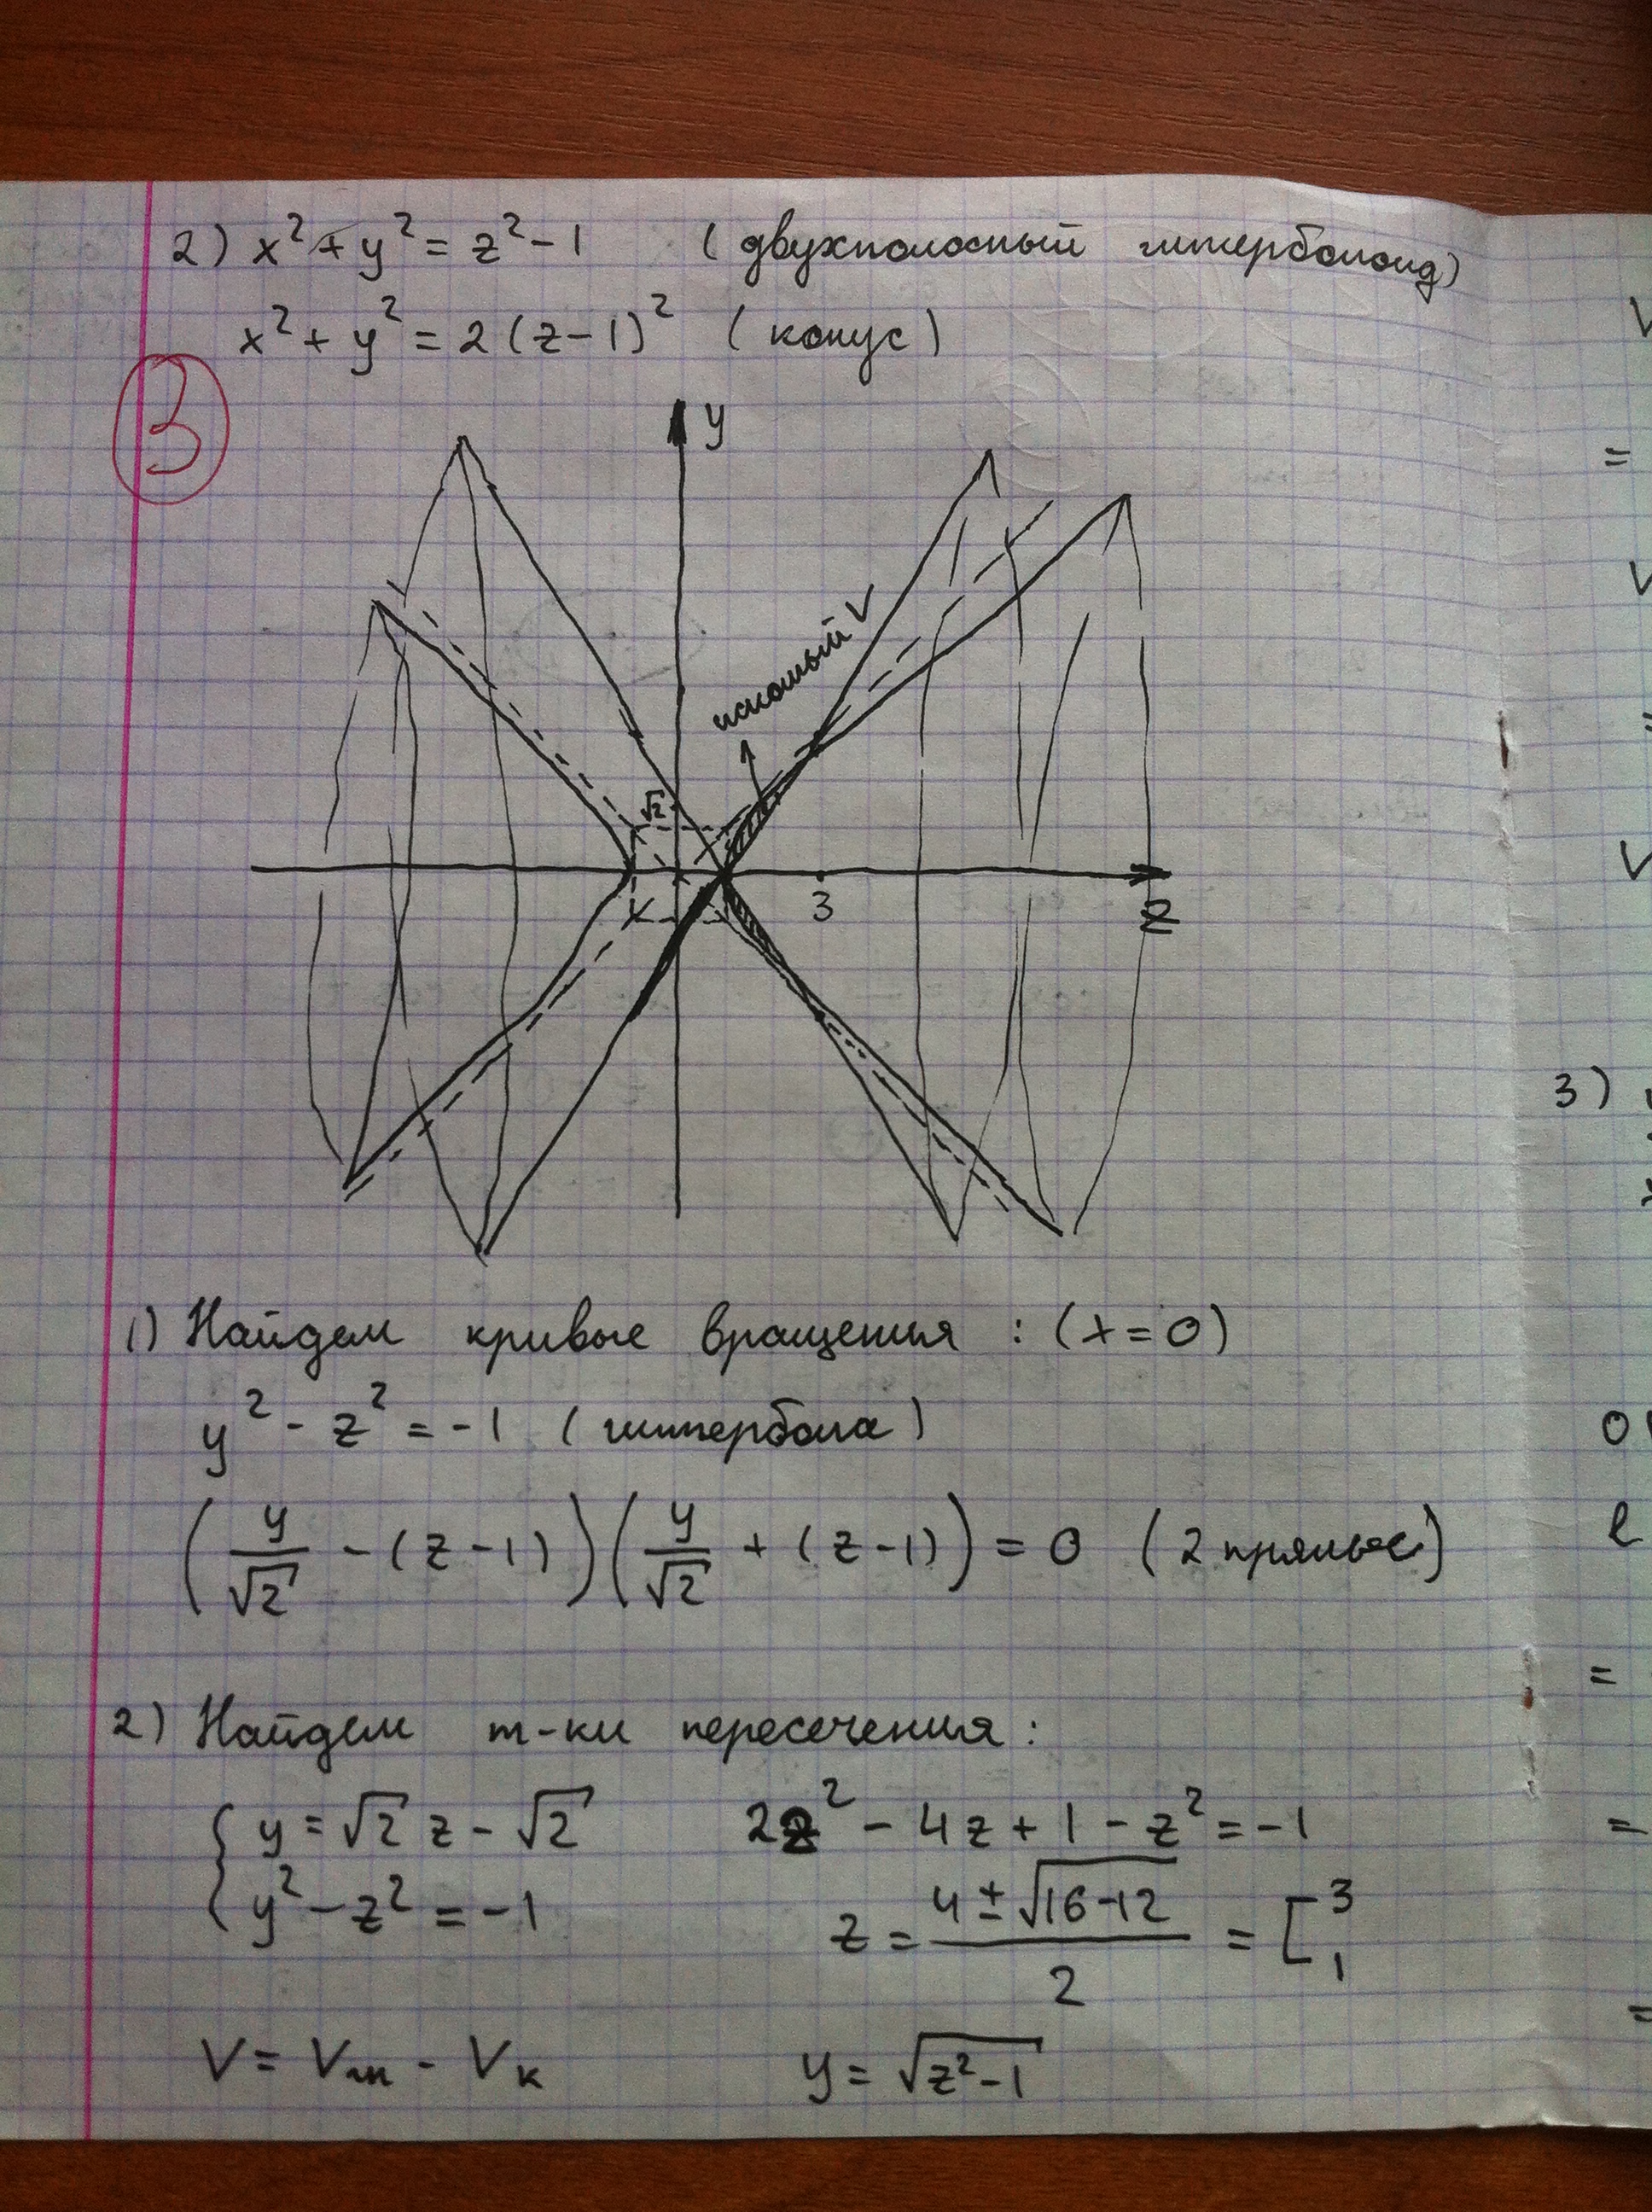 2) x² + y² = z² - 1 (двухполосный гиперболоид)
x² + y² = 2(z-1)² (конус)
3
y
искомый V
√2
3
z
1) Найдем кривые вращения : (x=0)
y² - z² = -1 (гипербола)
(y/√2 - (z-1))(y/√2 + (z-1)) = 0 (2 прямые)
2) Найдем т-ки пересечения:
{ y = √2 z - √2
2z² - 4z + 1 - z² = -1
{ y² - z² = -1
z = (4 ± √(16-12))/2 = [ 3 1
V = Vгип - Vк
y = √(z²-1)
V
=
V
V
3)
=
=